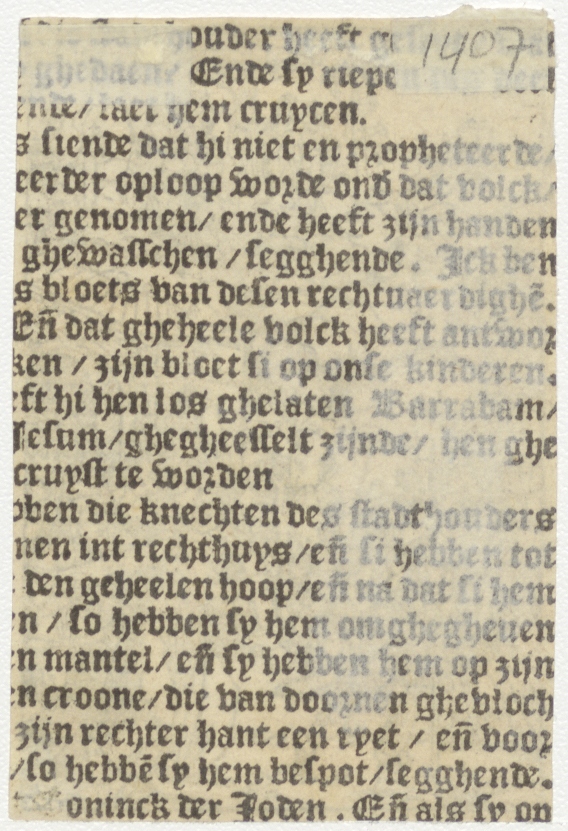 1407
houder heeft
ghedaene Ende sy riepē
ende/ laet hem cruycen.
s siende dat hi niet en propheteerde/
eerder oploop worde onď dat volck/
er genomen/ ende heeft zijn handen
ghewasschen / segghende. Ick ben
s bloets van desen rechtuaerdighē.
Eñ dat gheheele volck heeft antwor
ken / zijn bloet si op onse kinderen.
eft hi hen los ghelaten Barrabam/
Jesum/ghegheesselt zijnde/ hen ghe
cruyst te worden
bben die knechten des stadthouders
men int rechthuys/eñ si hebben tot
den geheelen hoop/eñ na dat si hem
n / so hebben sy hem omghegheuen
n mantel/ eñ sy hebben hem op zijn
n croone/die van doornen ghevloch
zijn rechter hant een ryet / eñ voor
/so hebbē sy hem bespot/segghende.
Coninck der Joden . Eñ als sy on